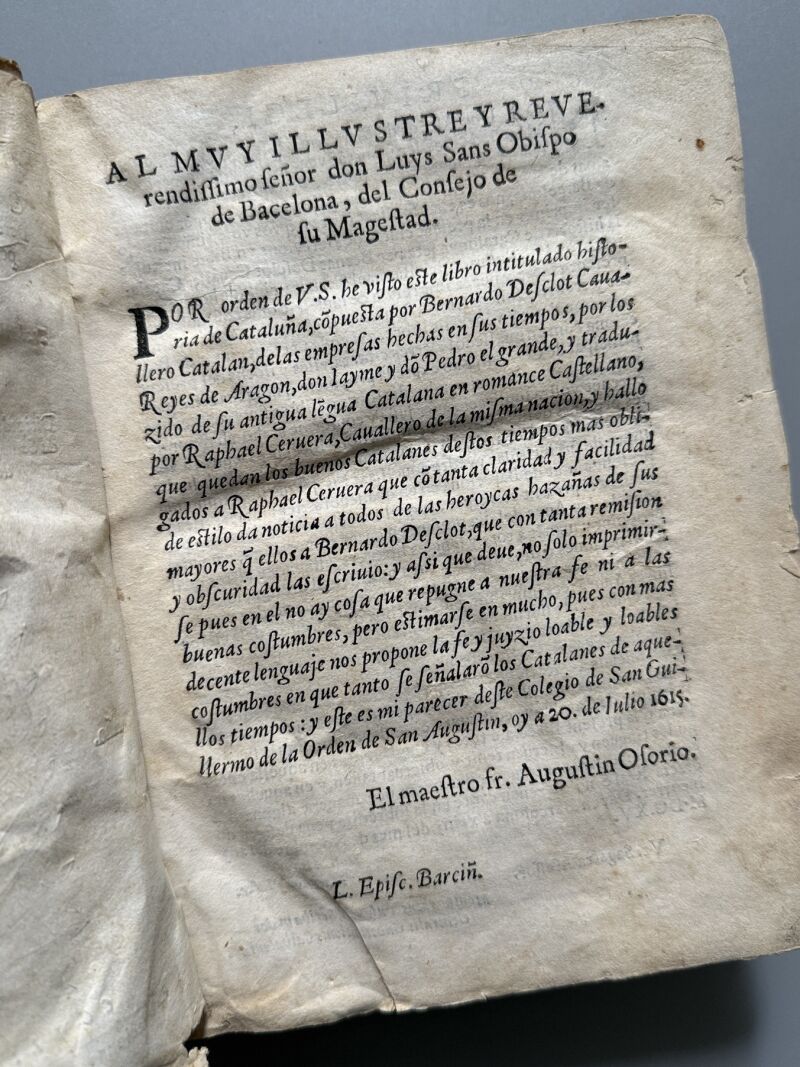 AL MVY ILLVSTRE Y REVE-
rendiſſimo ſeñor don Luys Sans Obiſpo
de Bacelona, del Conſejo de
ſu Mageſtad.
POR orden de V.S. he viſto eſte libro intitulado hiſto-
ria de Cataluña, cõpueſta por Bernardo Deſclot Caua-
llero Catalan, delas empreſas hechas en ſus tiempos, por los
Reyes de Aragon, don Iayme y dõ Pedro el grande, y tradu-
zido de ſu antigua lẽgua Catalana en romance Caſtellano,
por Raphael Ceruera, Cauallero de la miſma nacion, y hallo
que quedan los buenos Catalanes deſtos tiempos mas obli-
gados a Raphael Ceruera que cõ tanta claridad y facilidad
de eſtilo da noticia a todos de las heroycas hazañas de ſus
mayores q̃ ellos a Bernardo Deſclot, que con tanta remiſion
y obſcuridad las eſcriuio: y aſsi que deue, no ſolo imprimir-
ſe pues en el no ay coſa que repugne a nueſtra fe ni a las
buenas coſtumbres, pero eſtimarſe en mucho, pues con mas
decente lenguaje nos propone la fe y juyzio loable y loables
coſtumbres en que tanto ſe ſeñalarõ los Catalanes de aque-
llos tiempos: y eſte es mi parecer deſte Colegio de San Gui-
llermo de la Orden de San Auguſtin, oy a 20. de Iulio 1615.
El maeſtro fr. Auguſtin Oſorio.
L. Epiſc. Barciñ.